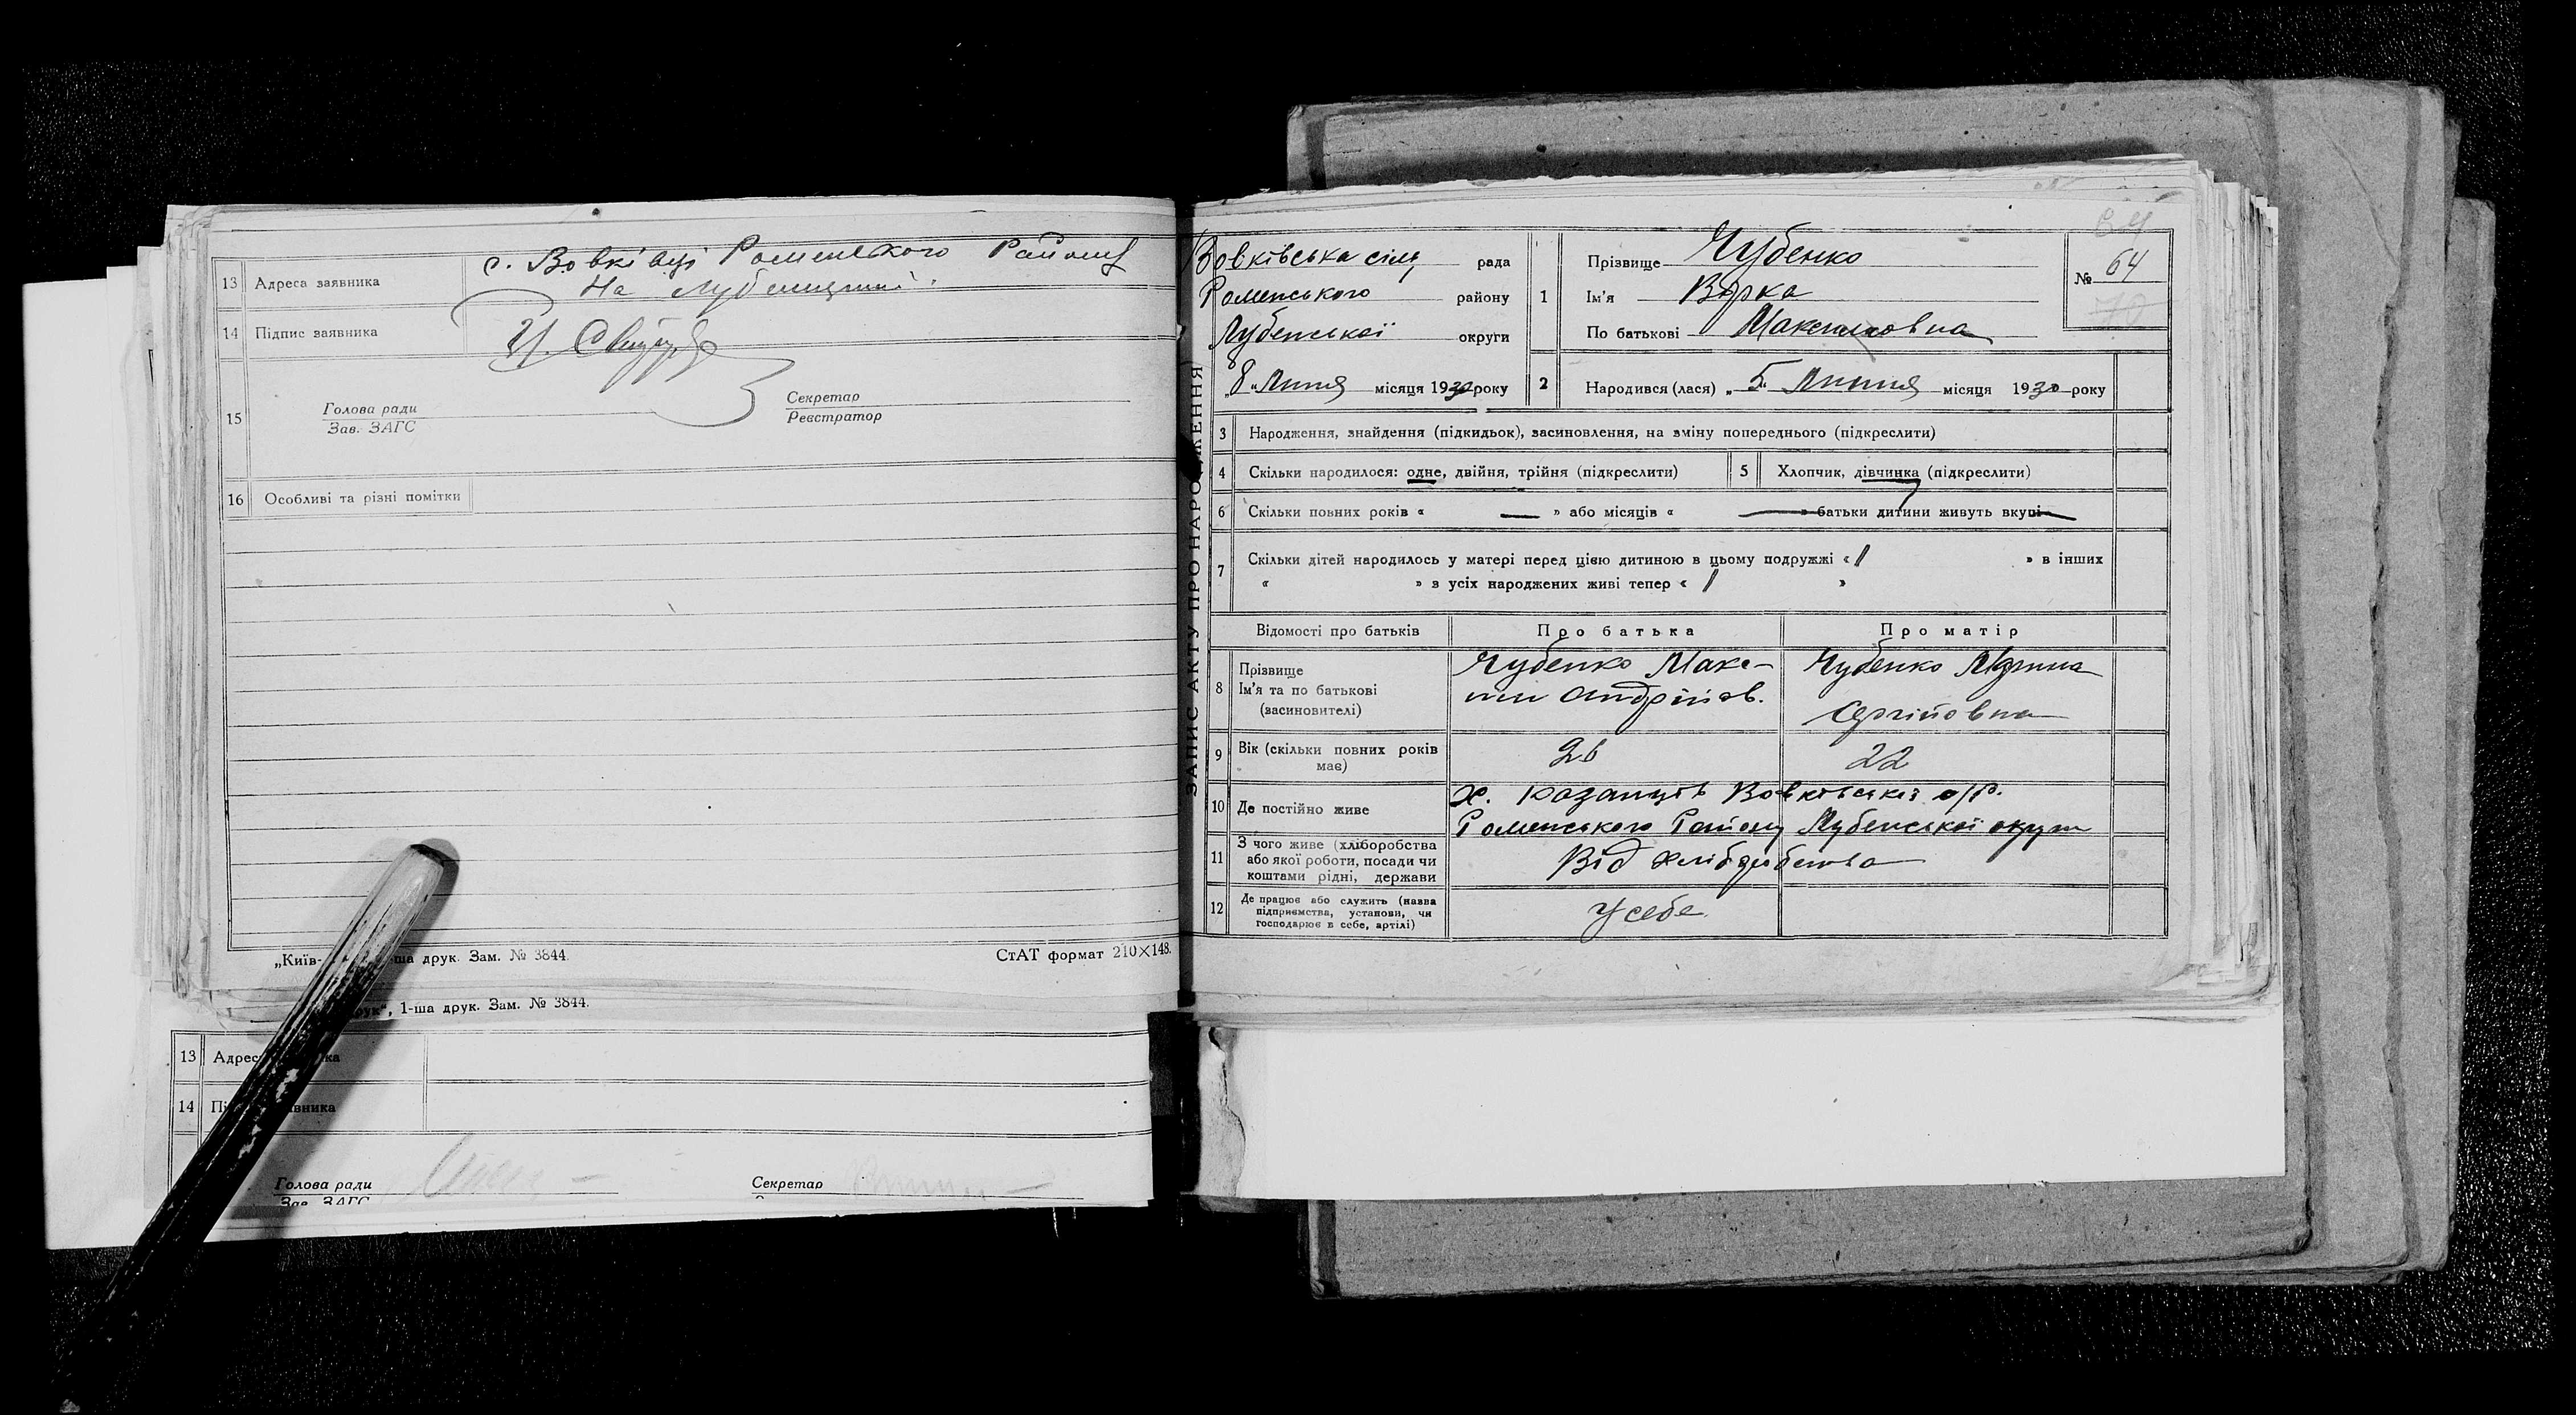 13 Адреса заявника с. Вовківці Роменського Району
На
14 Підпис заявника
15 Голова ради Секретар
Зав. ЗАГС Реєстратор
16 Особливі та різні помітки
„Київ- -ша друк. Зам. № 3844.
СтАТ формат 210×148.
друк“, 1-ша друк. Зам. № 3844.
13 Адрес ка
14 Пі явника
Голова ради Секретар
Зав. ЗАГС
ЗАПИС АКТУ ПРО НАРОДЖЕННЯ
Вовківська сіль рада
Роменського району
Лубенської округи
„8„ Липня місяця 1930 року
1 Прізвище Чубенко
Ім'я Варка
По батькові Максимовна
64
№ 64
70
2 Народився (лася) „5„ Липня місяця 1930 року
3 Народження, знайдення (підкидьок), засиновлення, на зміну попереднього (підкреслити)
4 Скільки народилося: одне, двійня, трійня (підкреслити) 5 Хлопчик, дівчинка (підкреслити)
6 Скільки повних років « — » або місяців « — » батьки дитини живуть вкупі
7 Скільки дітей народилось у матері перед цією дитиною в цьому подружжі « 1 » в інших
« » з усіх народжених живі тепер « 1 »
Відомості про батьків Про батька Про матір
8 Прізвище
Ім'я та по батькові
(засиновителі)
Чубенко Мак-
сим Андріїов.
Чубенко Марина
Сергійовна
9 Вік (скільки повних років
має)
26 22
10 Де постійно живе
х. Козанців Вовківської с/р.
Роменського Району Лубенської округи
11 З чого живе (хліборобства
або якої роботи, посади чи
коштами рідні, держави
Від хліборобства
12 Де працює або служить (назва
підприємства, установи, чи
господарює в себе, артілі)
У себе